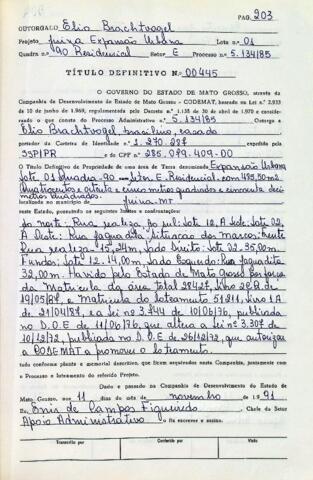 PAG. 203
OUTORGADO Elio Brachtvogel
Projeto Juina Expansão Urbana Lote n.o 01
Quadra n.o 90 Residencial Setor E Processo n.o 5.134/85
TÍTULO DEFINITIVO N.o 00445
O GOVERNO DO ESTADO DE MATO GROSSO, através da
Companhia de Desenvolvimento do Estado de Mato Grosso - CODEMAT, baseado na Lei n.o 2.933
de 10 de junho de 1969, regulamentada pelo Decreto n.o 1.138 de 30 de abril de 1970 e conside-
rando o que consta do Processo Administrativo n.o 5.134/85 Outorga a
Elio Brachtvogel, brasileiro, casado
portador da Carteira de Identidade n.o 1.270.887 expedida pela
SSP/PR e do CPF n.o 285.099.409-00
O Título Definitivo de Propriedade de uma área de Terras denominada Expansão Urbana
Lote 01 Quadra-90- Setor E-Residencial, com 485,50m2.
Quatrocentos e oitenta e cinco metros quadrados e cincoenta deci-
metros quadrados.
localizada no município Juina-MT
neste Estado, possuindo os seguintes limites e confrontações:
Ao norte: Rua realeza, Ao sul: lote 12, A leste: lote 02,
A Oeste: Rua Jaguadita, situação dos marcos: Frente
Rua realeza 15,24m, Lado Direito: lote 02-35,00m.
Fundos: lote 12-14,00m, Lado Esquerdo: Rua Jaguadita
32,00m. Havido pelo Estado de Mato Grosso por força
da Matricula da área total 28427, Livro 2CA de
19/05/87, e Matricula do Loteamento 51211, Livro 1A
de 21/04/87, e a Lei nº 3.744 de 10/06/76, publicada
no D.O.E de 11/06/76, que altera a Lei nº 3.307 de
10/12/72, publicada no D.O.E de 26/12/72, que autorizou
a CODEMAT a promover o loteamento.
tudo conforme planta e memorial descritivo, que ficam arquivados nesta Companhia, juntamente com
o Processo e loteamento do referido Projeto.
Dado e passado na Companhia de Desenvolvimento do Estado de
Mato Grosso, aos 11 dias do mês de novembro de 1991
Eu, Enia de Campos Figueiredo Chefe da Setor
Apoio Administrativo o fiz escrever e assino.
Transcrito por
Conferido por
Visto